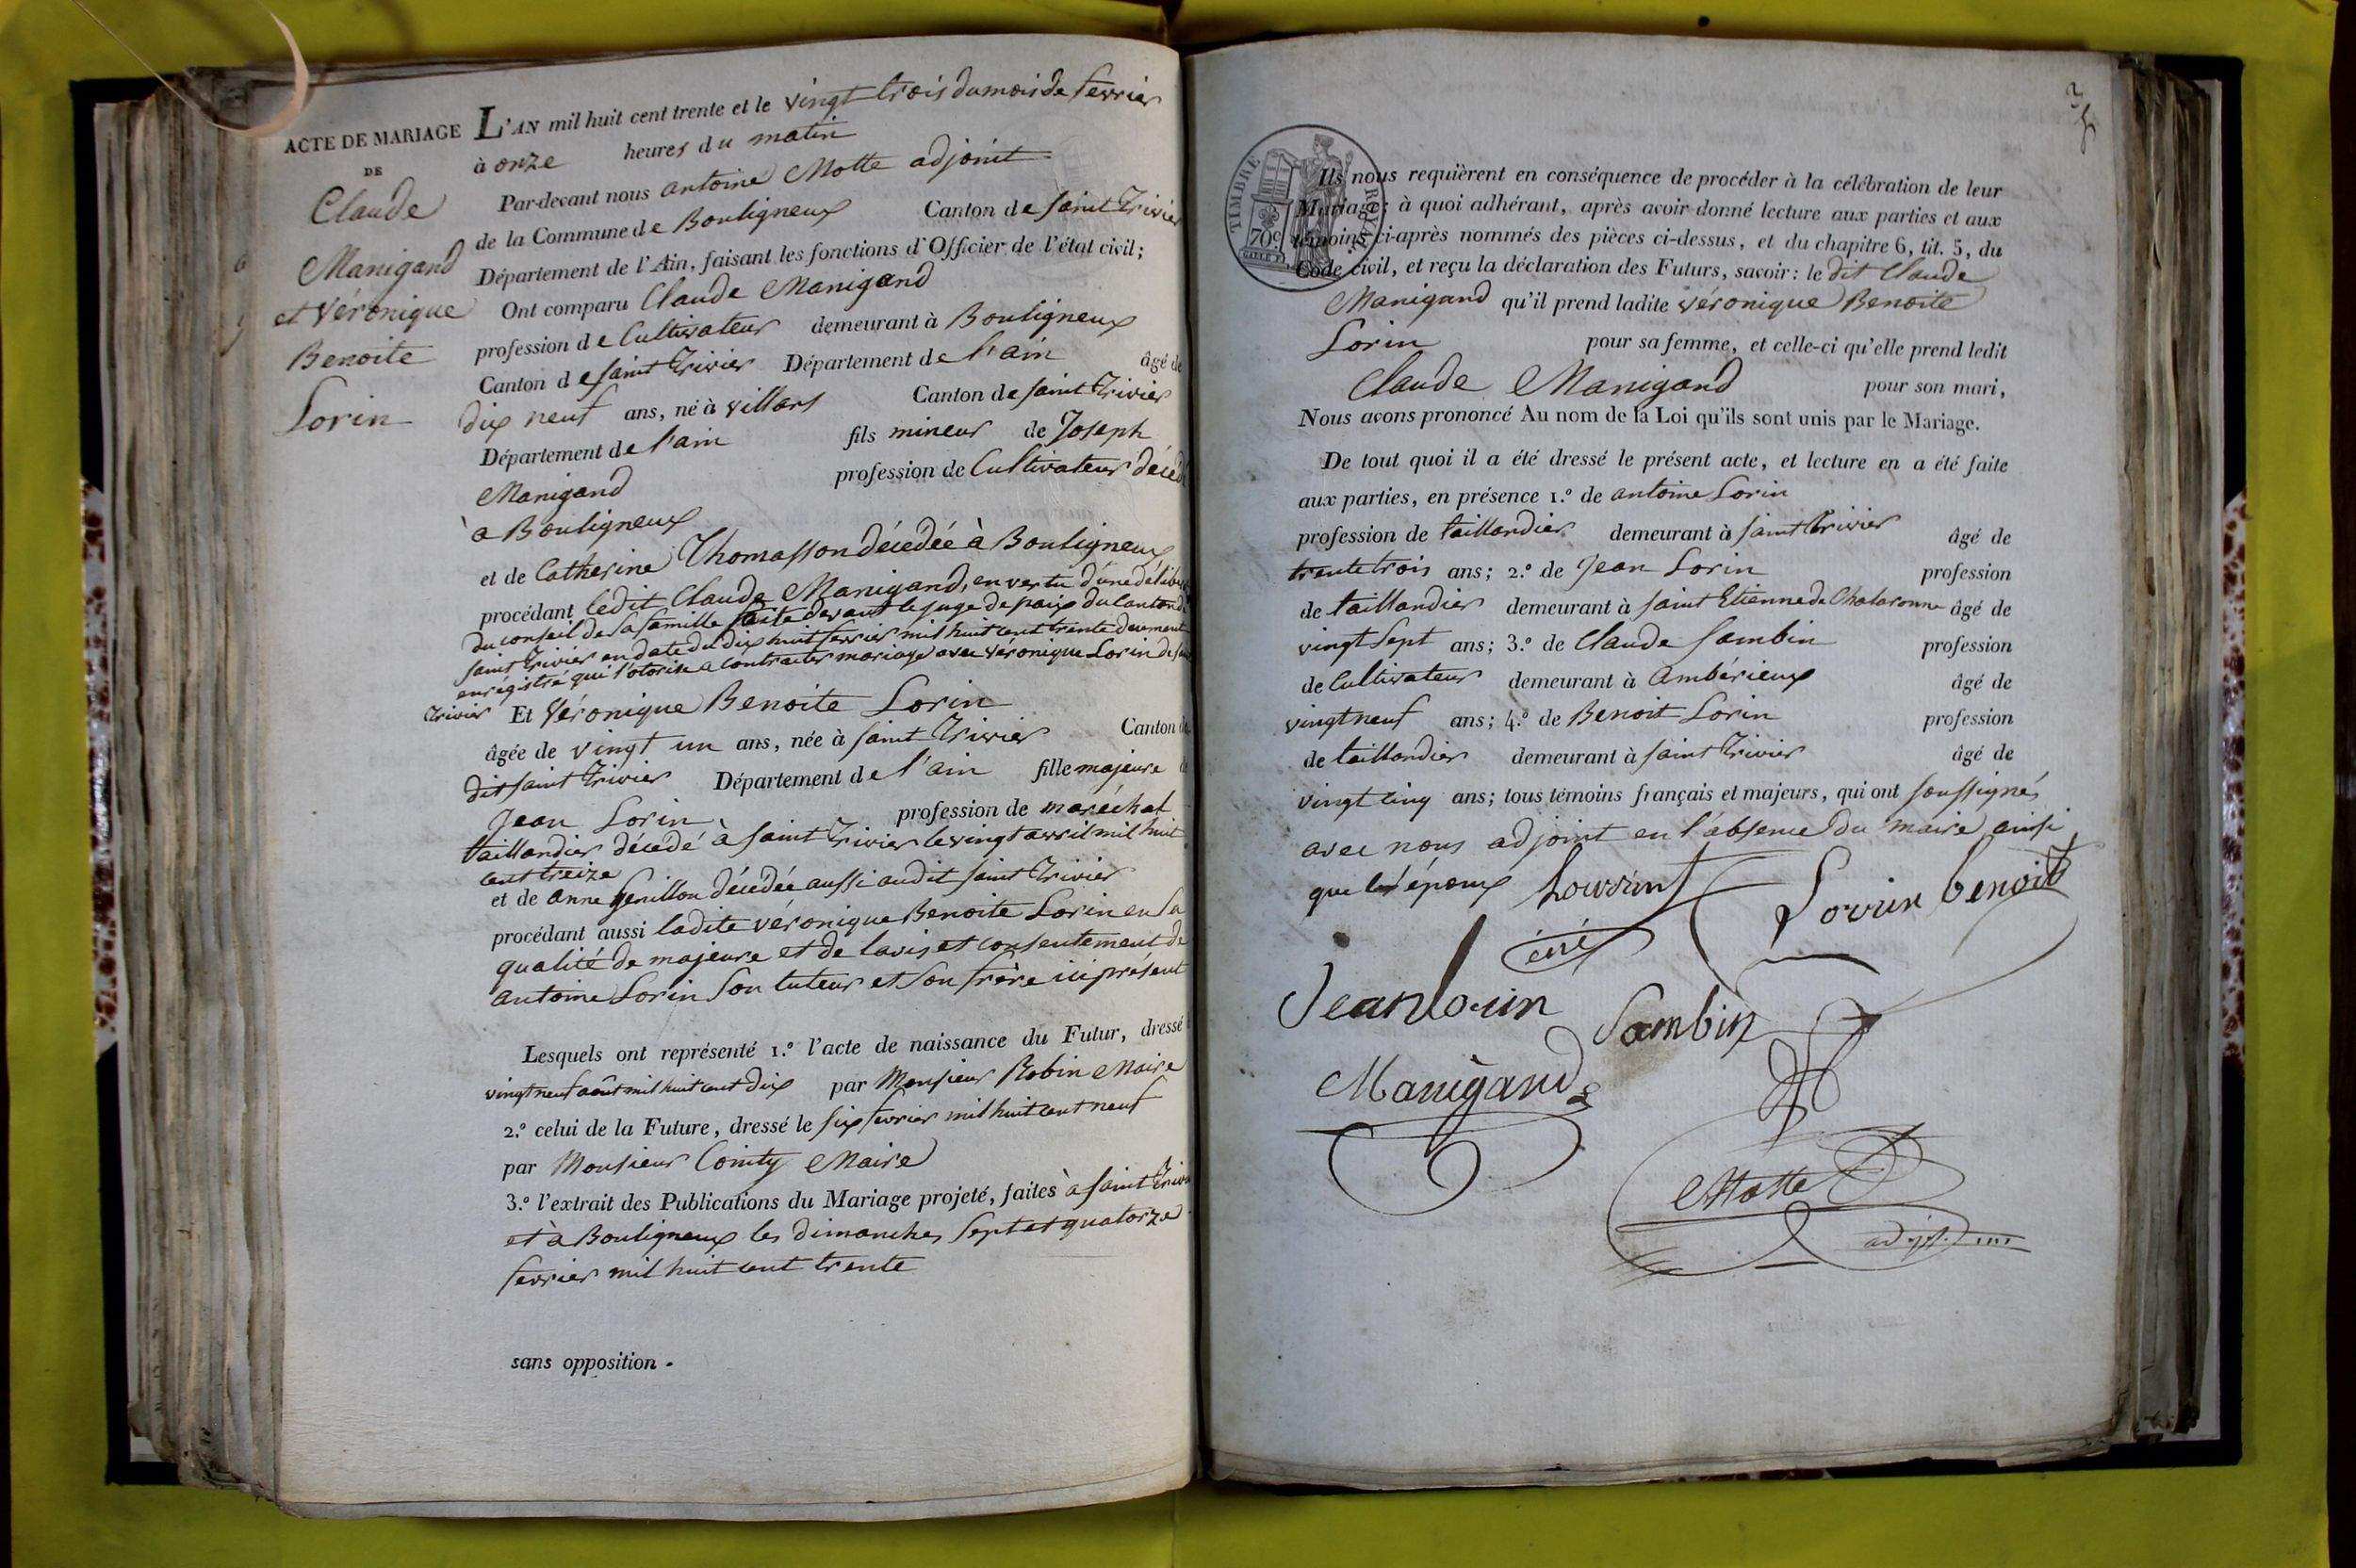 ACTE DE MARIAGE
DE
Claude
Manigand
et Véronique
Benoite
Lorin
L'AN mil huit cent trente et le vingt trois du mois de fevrier
à onze heures du matin
Par-devant nous antoine Motte adjoint
de la Commune de Bouligneux Canton de saint Trivier
Département de l'Ain, faisant les fonctions d'Officier de l'état civil;
Ont comparu Claude Manigand
profession de Cultivateur demeurant à Bouligneux
Canton de saint Trivier Département de l'ain âgé de
dix neuf ans, né à villars Canton de saint Trivier
Département de l'ain fils mineur de Joseph
Manigand profession de Cultivateur décédé
à Bouligneux
et de Catherine Thomasson décedée à Bouligneux
procédant ledit Claude Manigand, en vertu d'une
du conseil de sa famille faite devant le juge de paix du Canton de
saint Trivier en date du dix huit fevrier mil huit cent trente duement
enrégistré qui l'otorise a contracter mariage avec véronique Lorin de
trivier Et Véronique Benoite Lorin
âgée de vingt un ans, née à saint Trivier Canton
dit saint Trivier Département de l'ain fille majeure
Jean Lorin profession de maréchal
taillandier décédé à saint Trivier le vingt avril mil huit
cent treize
et de anne Genillon décédée aussi audit saint Trivier
procédant aussi ladite véronique Benoite Lorin en sa
qualité de majeure et de lavis et consentement de
antoine Lorin son tuteur et son frère ici présent
Lesquels ont représenté 1.º l'acte de naissance du Futur, dressé
vingt neuf août mil huit cent dix par Monsieur Robin Maire
2.º celui de la Future, dressé le six fevrier mil huit cent neuf
par Monsieur Comty Maire
3.º l'extrait des Publications du Mariage projeté, faites à saint Trivier
et à Bouligneux les dimanches sept et quatorze
fevrier mil huit cent trente
sans opposition.
TIMBRE ROYAL
70c
Ils nous requièrent en conséquence de procéder à la célébration de leur
Mariage; à quoi adhérant, après avoir donné lecture aux parties et aux
témoins ci-après nommés des pièces ci-dessus, et du chapitre 6, tit. 5, du
Code civil, et reçu la déclaration des Futurs, savoir: le dit Claude
Manigand qu'il prend ladite véronique Benoite
Lorin pour sa femme, et celle-ci qu'elle prend ledit
Claude Manigand pour son mari,
Nous avons prononcé Au nom de la Loi qu'ils sont unis par le Mariage.
De tout quoi il a été dressé le présent acte, et lecture en a été faite
aux parties, en présence 1.º de antoine Lorin
profession de taillandier demeurant à saint Trivier âgé de
trente trois ans; 2.º de Jean Lorin profession
de taillandier demeurant à saint Etienne de Chalaronne âgé de
vingt sept ans; 3.º de Claude Sambin profession
de Cultivateur demeurant à Ambérieux âgé de
vingt neuf ans; 4.º de Benoit Lorin profession
de taillandier demeurant à saint Trivier âgé de
vingt cinq ans; tous témoins français et majeurs, qui ont soussignés
avec nous adjoint en l'absence du maire ainsi
que les époux
Lorrin benoit
Jean lorin
Sambin
Manigand
Motte